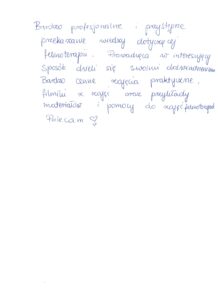 Bardzo profesjonalne i przystępne
przekazanie wiedzy dotyczącej
felinoterapii. Prowadząca w interesujący
sposób dzieli się swoimi doświadczeniami
Bardzo cenne zajęcia praktyczne,
filmiki z zajęć oraz przykłady
materiałów i pomocy do zajęć
Polecam ♡